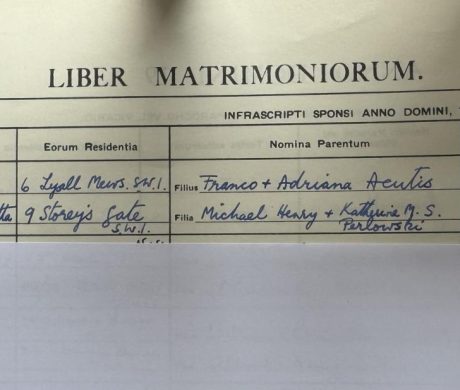 LIBER MATRIMONIORUM.
INFRASCRIPTI SPONSI ANNO DOMINI,
Eorum Residentia Nomina Parentum
6 Lyall Mews. S.W.1. Filius Franco + Adriana Acutis
9 Storey's Gate Filia Michael Henry + Katherine M. S.
S.W.1. Perlowski